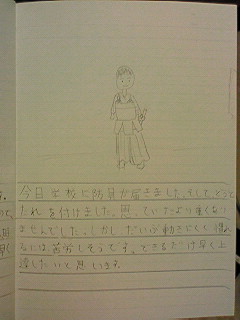 今日学校に防具が届きました。そしてどうと
たれを付けました。思っていたより重くなり
ませんでした。しかしだいぶ動きにくく慣れ
るには苦労しそうです。できるだけ早く上
達したいと思います。